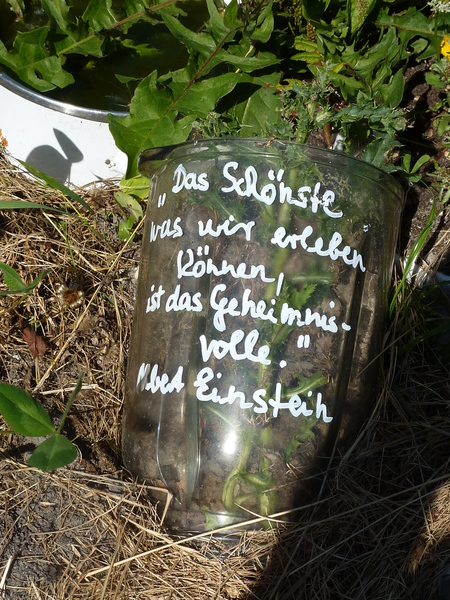 "Das Schönste
was wir erleben
können!
ist das Geheimnis-
volle."
Albert Einstein